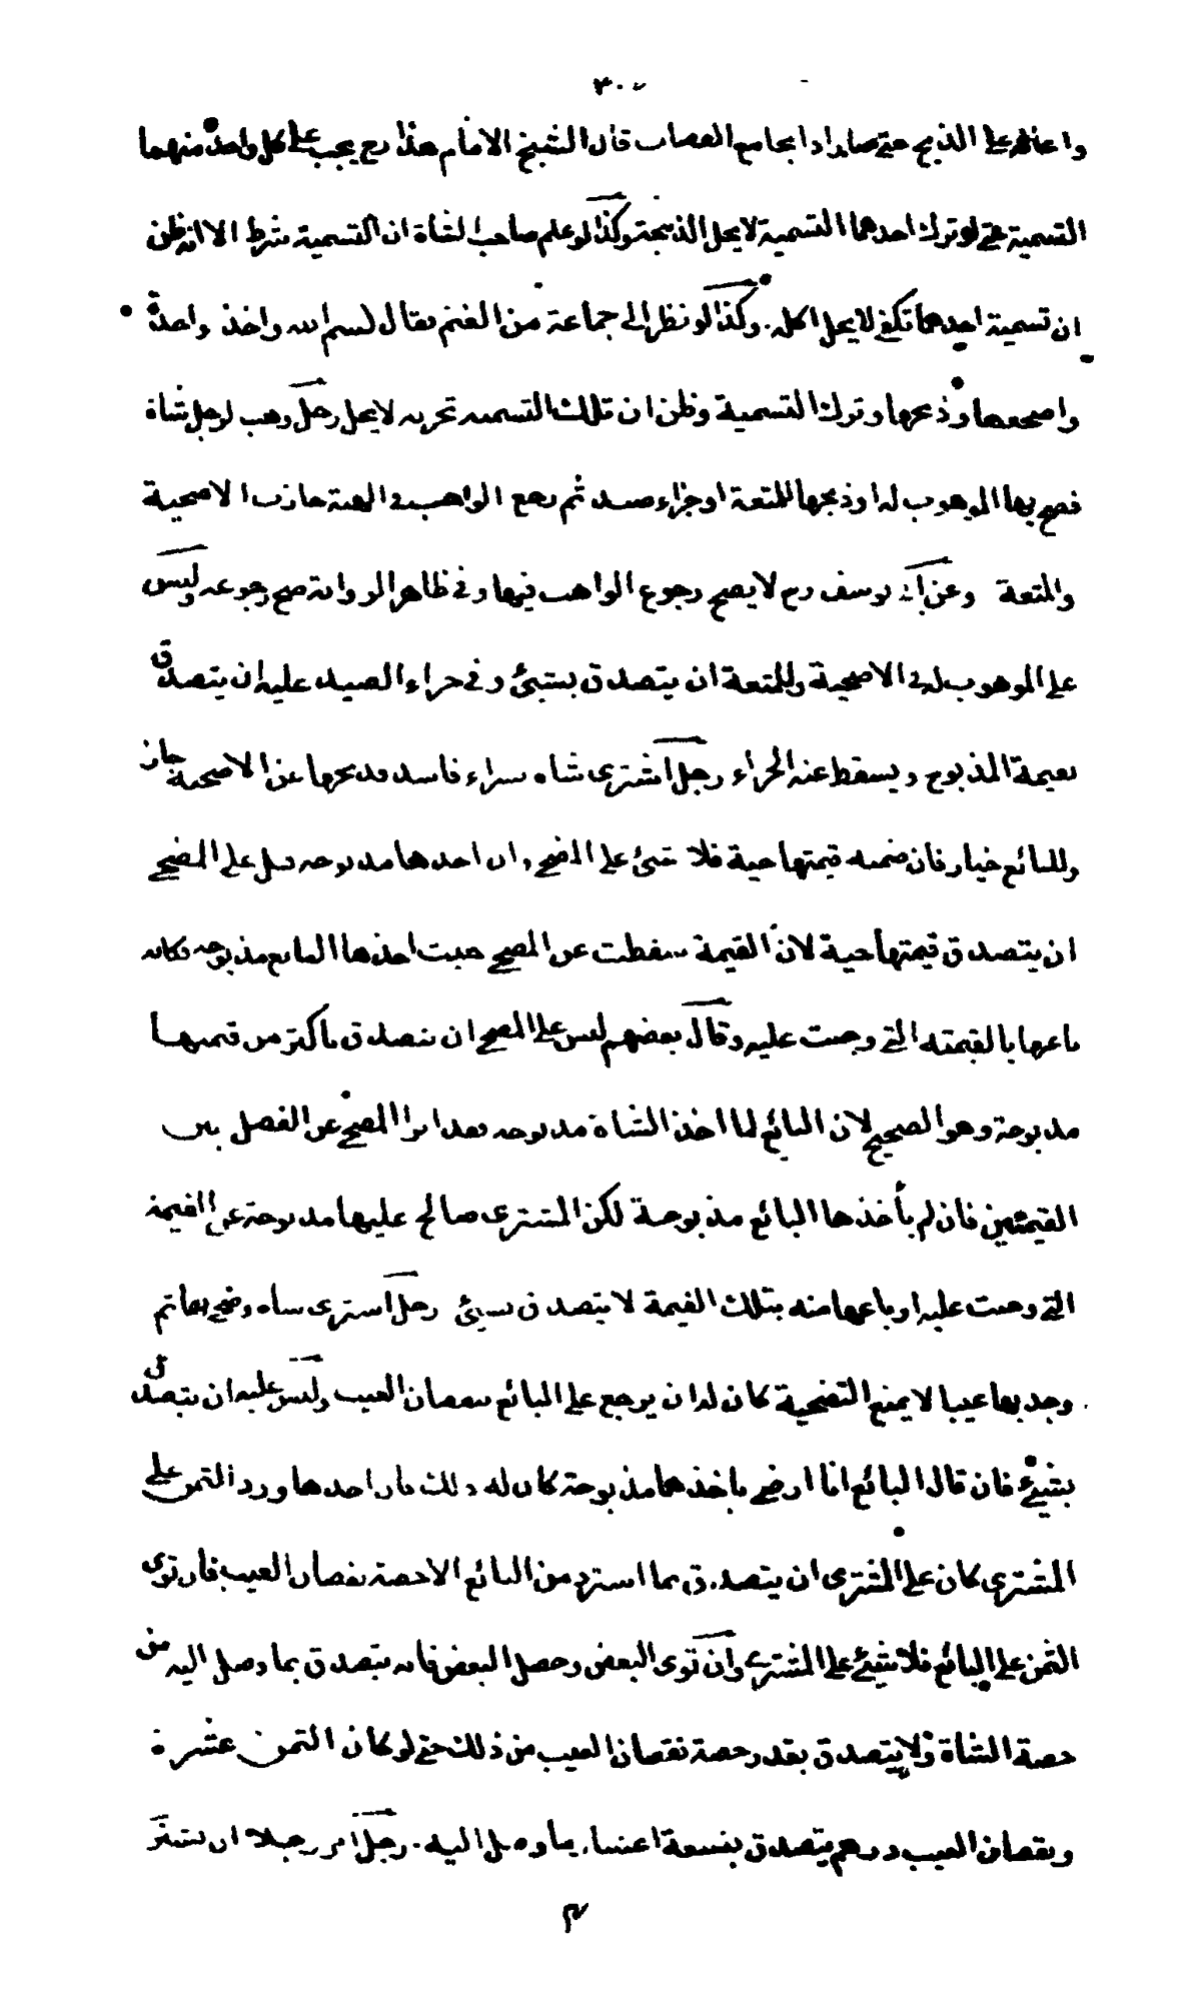 واعانه على الذبح حتى صار ذابحا مع القصاب قال الشيخ الامام هذا رح يجب على كل واحد منهما
التسمية حتى لو ترك احدهما التسمية لا يحل الذبيحة وكذا لو علم صاحب الشاة ان التسمية شرط الا انه ظن
ان تسمية احدهما تكفي لا يحل اكله. وكذا لو نظر الى جماعة من الغنم فقال بسم الله واخذ واحدة
واضجعها وذبحها وترك التسمية وظن ان تلك التسمية تجزيه لا يحل رجل وهب لرجل شاة
فضحى بها الموهوب له او ذبحها للمتعة او جزاء صيد ثم رجع الواهب في الهبة جازت الاضحية
والمتعة وعن ابي يوسف رح لا يصح رجوع الواهب فيها وفي ظاهر الرواية صح رجوعه وليس
على الموهوب له في الاضحية وللمتعة ان يتصدق بشئ وفي جزاء الصيد عليه ان يتصدق
بقيمة المذبوح ويسقط عنه الجزاء رجل اشترى شاة شراء فاسد فذبحها عن الاضحية جاز
وللبائع خيار فان ضمنه قيمتها حية فلا شئ على المضحي وان اخذها مذبوحة قيل على المضحي
ان يتصدق قيمتها حية لان القيمة سقطت عن المضحي حيث اخذها البائع مذبوحة فكانه
باعها بالقيمته التي وجبت عليه وقال بعضهم ليس على المضحي ان يتصدق باكثر من قيمتها
مذبوحة وهو الصحيح لان البائع لما اخذ الشاة مذبوحة فقد ابرأ المضحي عن الفضل بين
القيمتين فان لم يأخذها البائع مذبوحة لكن المشترى صالح عليها مذبوحة عن القيمة
التي وجبت عليه او باعها منه بتلك القيمة لا يتصدق بشئ رجل اشترى شاة وضحى بها ثم
وجد بها عيبا لا يمنع التضحية كان له ان يرجع على البائع بنقصان العيب وليس عليه ان يتصدق
بشيئ فان قال البائع انا ارضى باخذها مذبوحة كان له ذلك فان اخذها ورد الثمن على
المشترى كان على المشترى ان يتصدق بما استرد من البائع الا حصة نقصان العيب فان توى
الثمن على البائع فلا شيئ على المشترى وان توى البعض وحصل البعض فانه يتصدق بما وصل اليه من
حصة الشاة ولا يتصدق بقدر حصة نقصان العيب من ذلك حتى لو كان الثمن عشرة
ونقصان العيب درهم يتصدق بتسعة اعشار ما وصل اليه. رجل امر رجلا ان يشتر